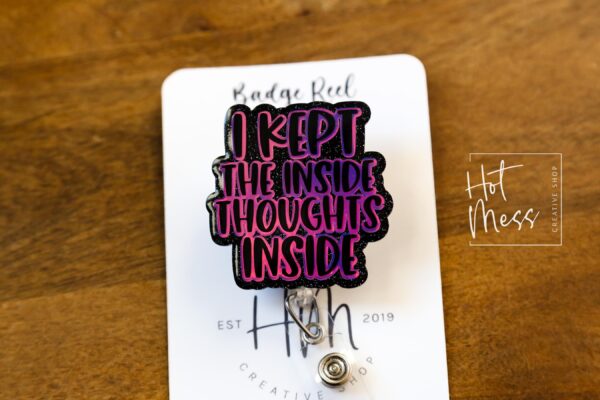 Badge Reel
I KEPT
THE INSIDE
THOUGHTS
INSIDE
EST 2019
CREATIVE SHOP
Hot
Mess
CREATIVE SHOP